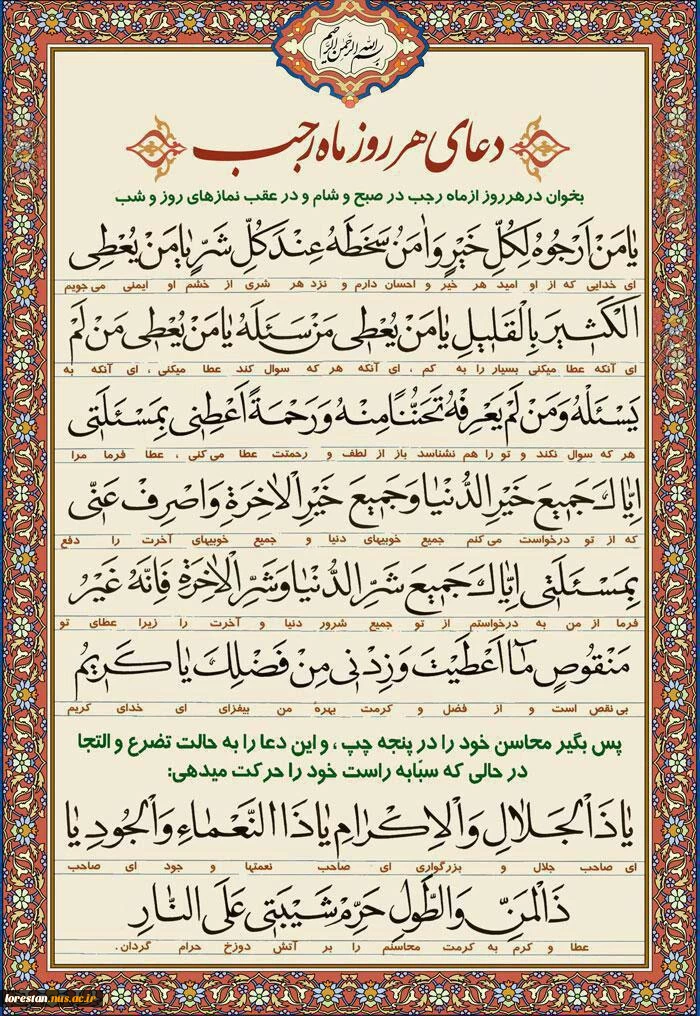 بسم الله الرحمن الرحیم
دعای هر روز ماه رجب
بخوان در هر روز از ماه رجب در صبح و شام و در عقب نمازهای روز و شب
یٰا مَنْ اَرْجُوهُ لِکُلِّ خَیْرٍ وَاٰمَنُ سَخَطَهُ عِنْدَ کُلِّ شَرٍّ یٰا مَنْ یُعْطِی
ای خدایی که از او امید هر خیر و احسان دارم و نزد هر شری از خشم او ایمنی می‌جویم
الْکَثیٖرَ بِالْقَلیٖلِ یٰا مَنْ یُعْطیٖ مَنْ سَئَلَهُ یٰا مَنْ یُعْطیٖ مَنْ لَمْ
ای آنکه عطا میکنی بسیار را به کم ، ای آنکه هر که سوال کند عطا میکنی ، ای آنکه به
یَسْئَلْهُ وَمَنْ لَمْ یَعْرِفْهُ تَحَنُّنًا مِنْهُ وَرَحْمَةً اَعْطِنیٖ بِمَسْئَلَتیٖ
هر که سوال نکند و تو را هم نشناسد باز از لطف و رحمتت عطا می‌کنی ، عطا فرما مرا
اِیّٰاکَ جَمیٖعَ خَیْرِ الدُّنْیٰا وَجَمیٖعَ خَیْرِ الْاٰخِرَةِ وَاصْرِفْ عَنّیٖ
که از تو درخواست می‌کنم جمیع خوبیهای دنیا و جمیع خوبیهای آخرت را دفع
بِمَسْئَلَتیٖ اِیّٰاکَ جَمیٖعَ شَرِّ الدُّنْیٰا وَشَرِّ الْاٰخِرَةِ فَاِنَّهُ غَیْرُ
فرما از من به درخواستم از تو جمیع شرور دنیا و آخرت را زیرا عطای تو
مَنْقُوصٍ مٰا اَعْطَیْتَ وَزِدْنیٖ مِنْ فَضْلِکَ یٰا کَریٖمُ
بی نقص است و از فضل و کرمت بهرهٔ من بیفزای ای خدای کریم
پس بگیر محاسن خود را در پنجه چپ ، و این دعا را به حالت تضرع و التجا
در حالی که سبّابه راست خود را حرکت میدهی:
یٰا ذَا الْجَلٰالِ وَالْاِکْرٰامِ یٰا ذَا النَّعْمٰاءِ وَالْجُودِ یٰا
ای صاحب جلال و بزرگواری ای صاحب نعمتها و جود ای صاحب
ذَا الْمَنِّ وَالطَّوْلِ حَرِّمْ شَیْبَتیٖ عَلَی النّٰارِ
عطا و کرم به کرمت محاسنم را بر آتش دوزخ حرام گردان.
lorestan.nus.ac.ir